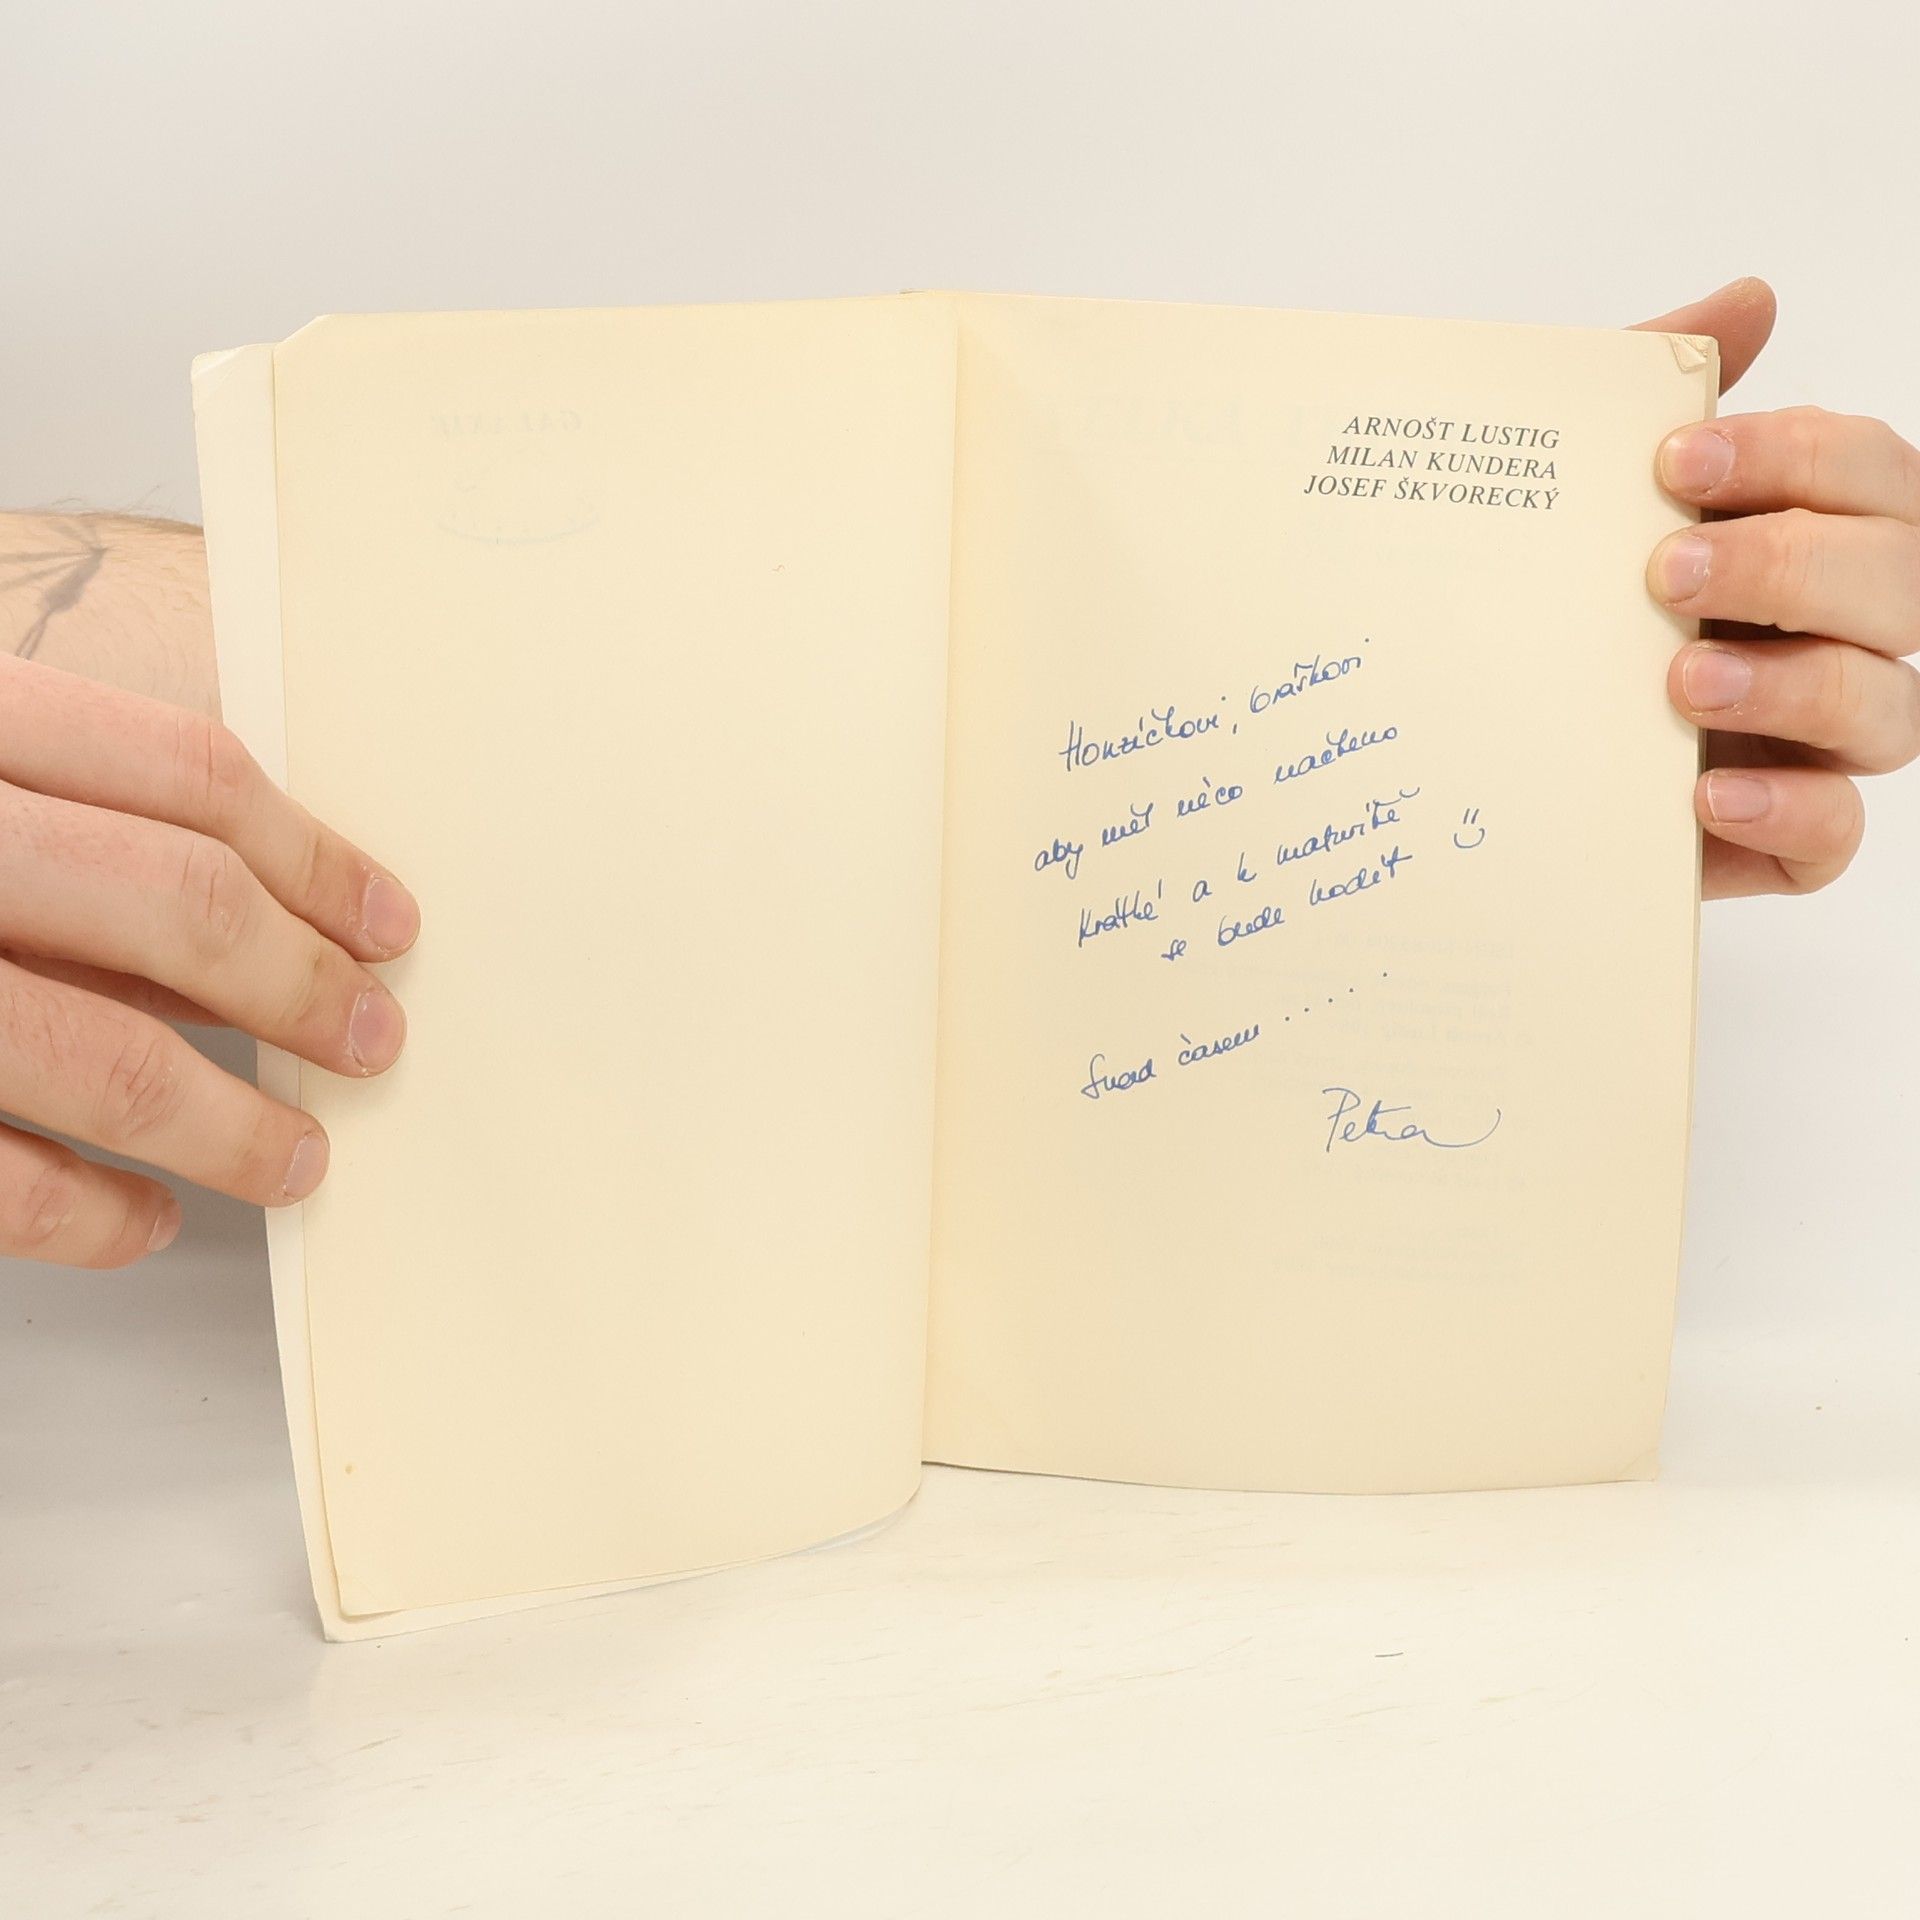 ARNOŠT LUSTIG
MILAN KUNDERA
JOSEF ŠKVORECKÝ
Honzíčkovi, bráškovi
aby měl něco načteno
Krátké a k maturitě
se bude hodit
Snad časem .....
Petra
GALAXIE